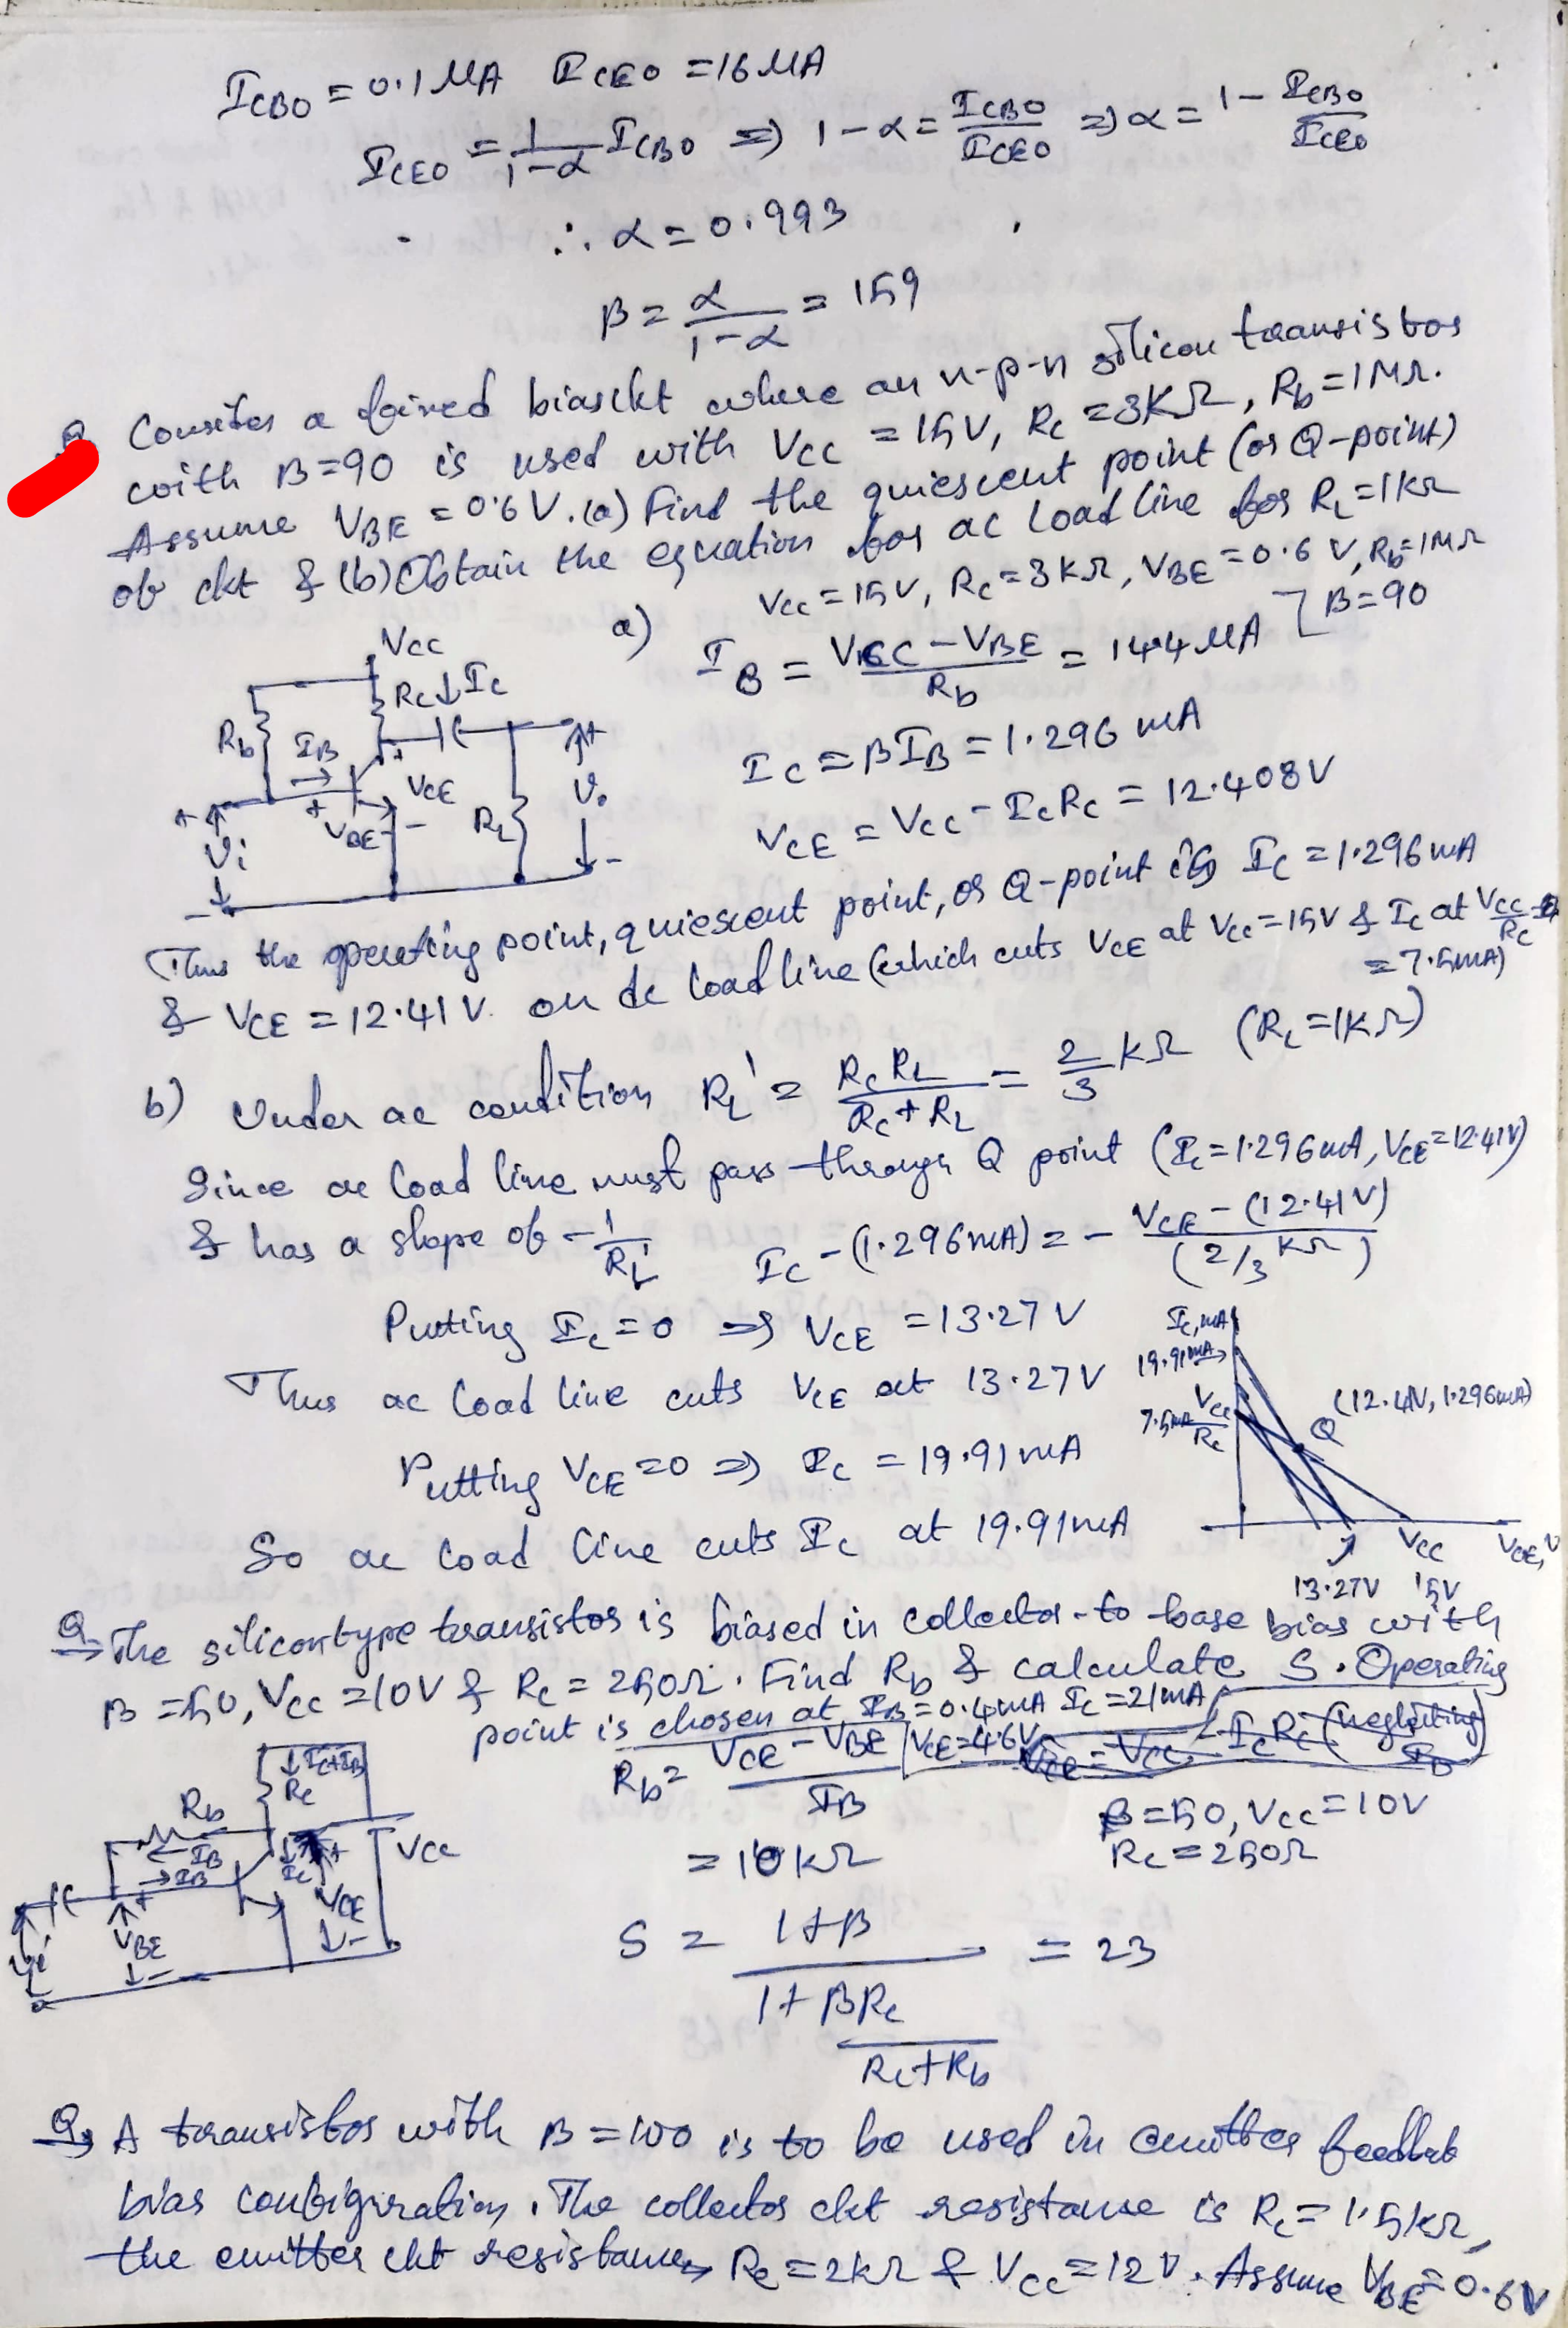 I_CBO = 0.1 μA I_CEO = 16 μA
I_CEO = 1/(1-α) I_CBO ⇒ 1-α = I_CBO/I_CEO ⇒ α = 1 - I_CBO/I_CEO
∴ α = 0.993
β = α/(1-α) = 159
Q Consider a foixed bias ckt where an n-p-n silicon transistor
with β=90 is used with Vcc = 15V, Rc = 3KΩ, Rb = 1MΩ.
Assume V_BE = 0.6V. (a) Find the quiescent point (or Q-point)
of ckt & (b) Obtain the equation for ac load line for R_L = 1KΩ
Vcc = 15V, Rc = 3KΩ, V_BE = 0.6 V, Rb = 1MΩ
β=90
a) I_B = (Vcc - V_BE)/Rb = 14.4 μA
Ic = βI_B = 1.296 mA
V_CE = Vcc - IcRc = 12.408V
Vcc
Rc ↓Ic
Rb
I_B
V_CE
V_BE
R_L
Vo
Vi
Thus the operating point, quiescent point, or Q-point is Ic = 1.296mA
& V_CE = 12.41 V. on dc load line (which cuts V_CE at Vcc = 15V & Ic at Vcc/Rc
= 7.5mA)
b) Under ac condition R_L' = RcR_L/(Rc+R_L) = 2/3 KΩ (R_L = 1KΩ)
Since ac load line must pass through Q point (Ic = 1.296mA, V_CE = 12.41V)
& has a slope of -1/R_L' Ic - (1.296mA) = - (V_CE - (12.41V))/(2/3 KΩ)
Putting Ic = 0 ⇒ V_CE = 13.27V
Thus ac load line cuts V_CE at 13.27V
Putting V_CE = 0 ⇒ Ic = 19.91mA
So ac load line cuts Ic at 19.91mA
Ic, mA
19.91mA
7.5mA Vcc/Rc
Q (12.41V, 1.296mA)
Vcc V_CE, V
13.27V 15V
Q The silicon type transistor is biased in collector-to-base bias with
β = 50, Vcc = 10V & Rc = 250Ω. Find Rb & calculate S. Operating
point is chosen at I_B = 0.4mA Ic = 21mA
V_CE = 4.6V
Rb = (V_CE - V_BE)/I_B
V_CE = Vcc - IcRc (neglecting I_B)
= 10KΩ
β = 50, Vcc = 10V
Rc = 250Ω
↓Ic+I_B
Rc
Rb
I_B
I_B
Ic
Vcc
V_CE
V_BE
Vi
S = (1+β)/(1 + βRc/(Rc+Rb)) = 23
Q A transistor with β = 100 is to be used in emitter feedbak
bias configuration. The collector ckt resistance is Rc = 1.5KΩ,
the emitter ckt resistance Re = 2KΩ & Vcc = 12V. Assume V_BE = 0.6V